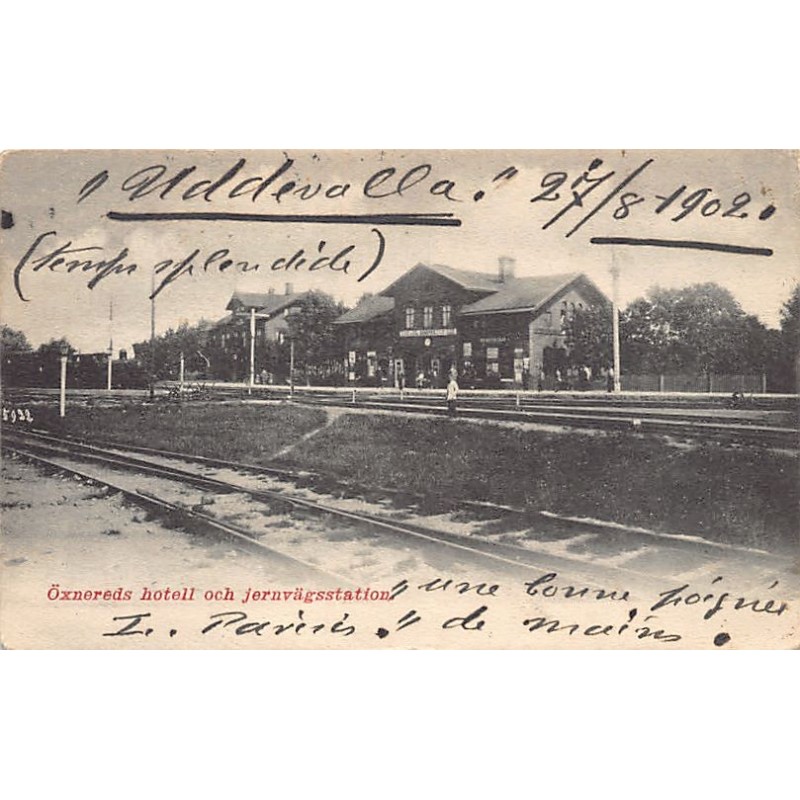 "Uddevalla." 27/8 1902.
(temps splendide)
5932
Öxnereds hotell och jernvägsstation.
"une bonne poignée
I. " de mains.